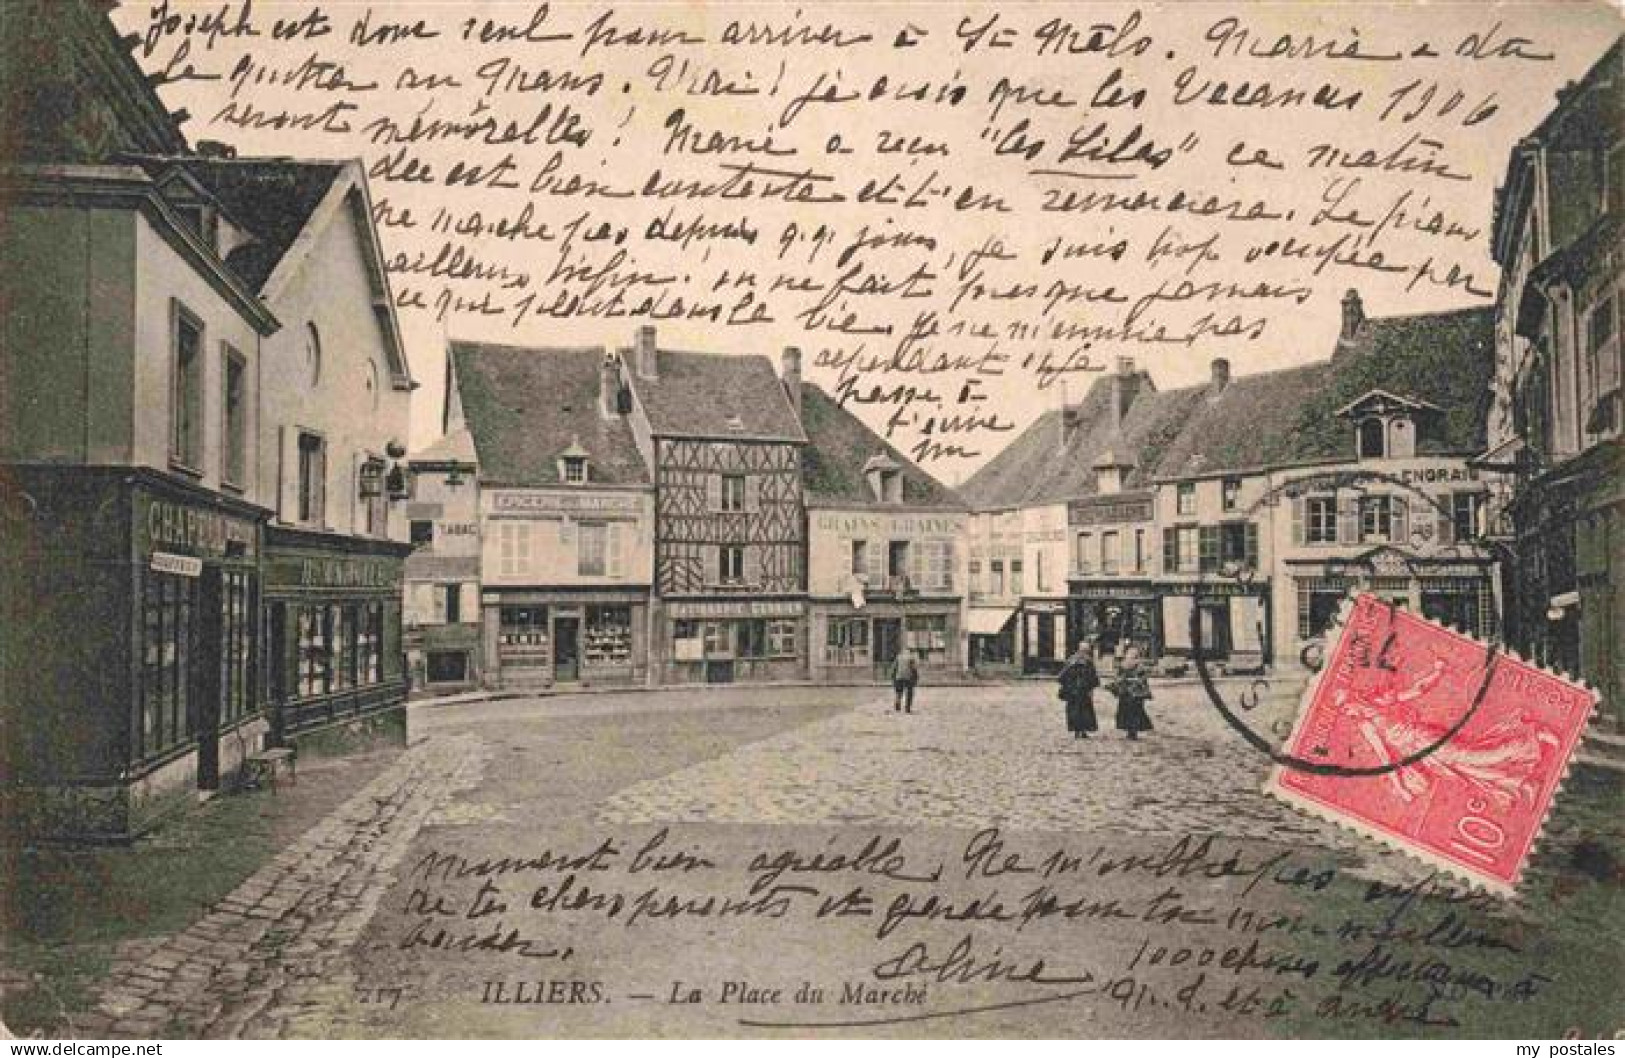 Joseph est donc seul pour arriver à St Malo. Marie a dû
le quitter au Mans. Vrai! je crois que les Vacances 1906
seront mémorables! Marie a reçu "les Lilas" ce matin
elle est bien contente et t'en remerciera. Le piano
ne marche pas depuis q.q. jours, je suis trop occupée par
ailleurs. Enfin! on ne fait presque jamais
ce qui plait dans la vie. Je ne m'ennuie pas
cependant et je
passe à
t'écrire
un
CHAPELLERIE
TABAC
EPICERIE
GRAINS GRAINES
ENGRAIS
10c
moment bien agréable. Ne m'oublie pas auprès
de tes chers parents et garde pour toi mon meilleur
baiser.
Aline
1000 choses affectueuses à
M. J. et à André
217 ILLIERS. — La Place du Marché
my postales